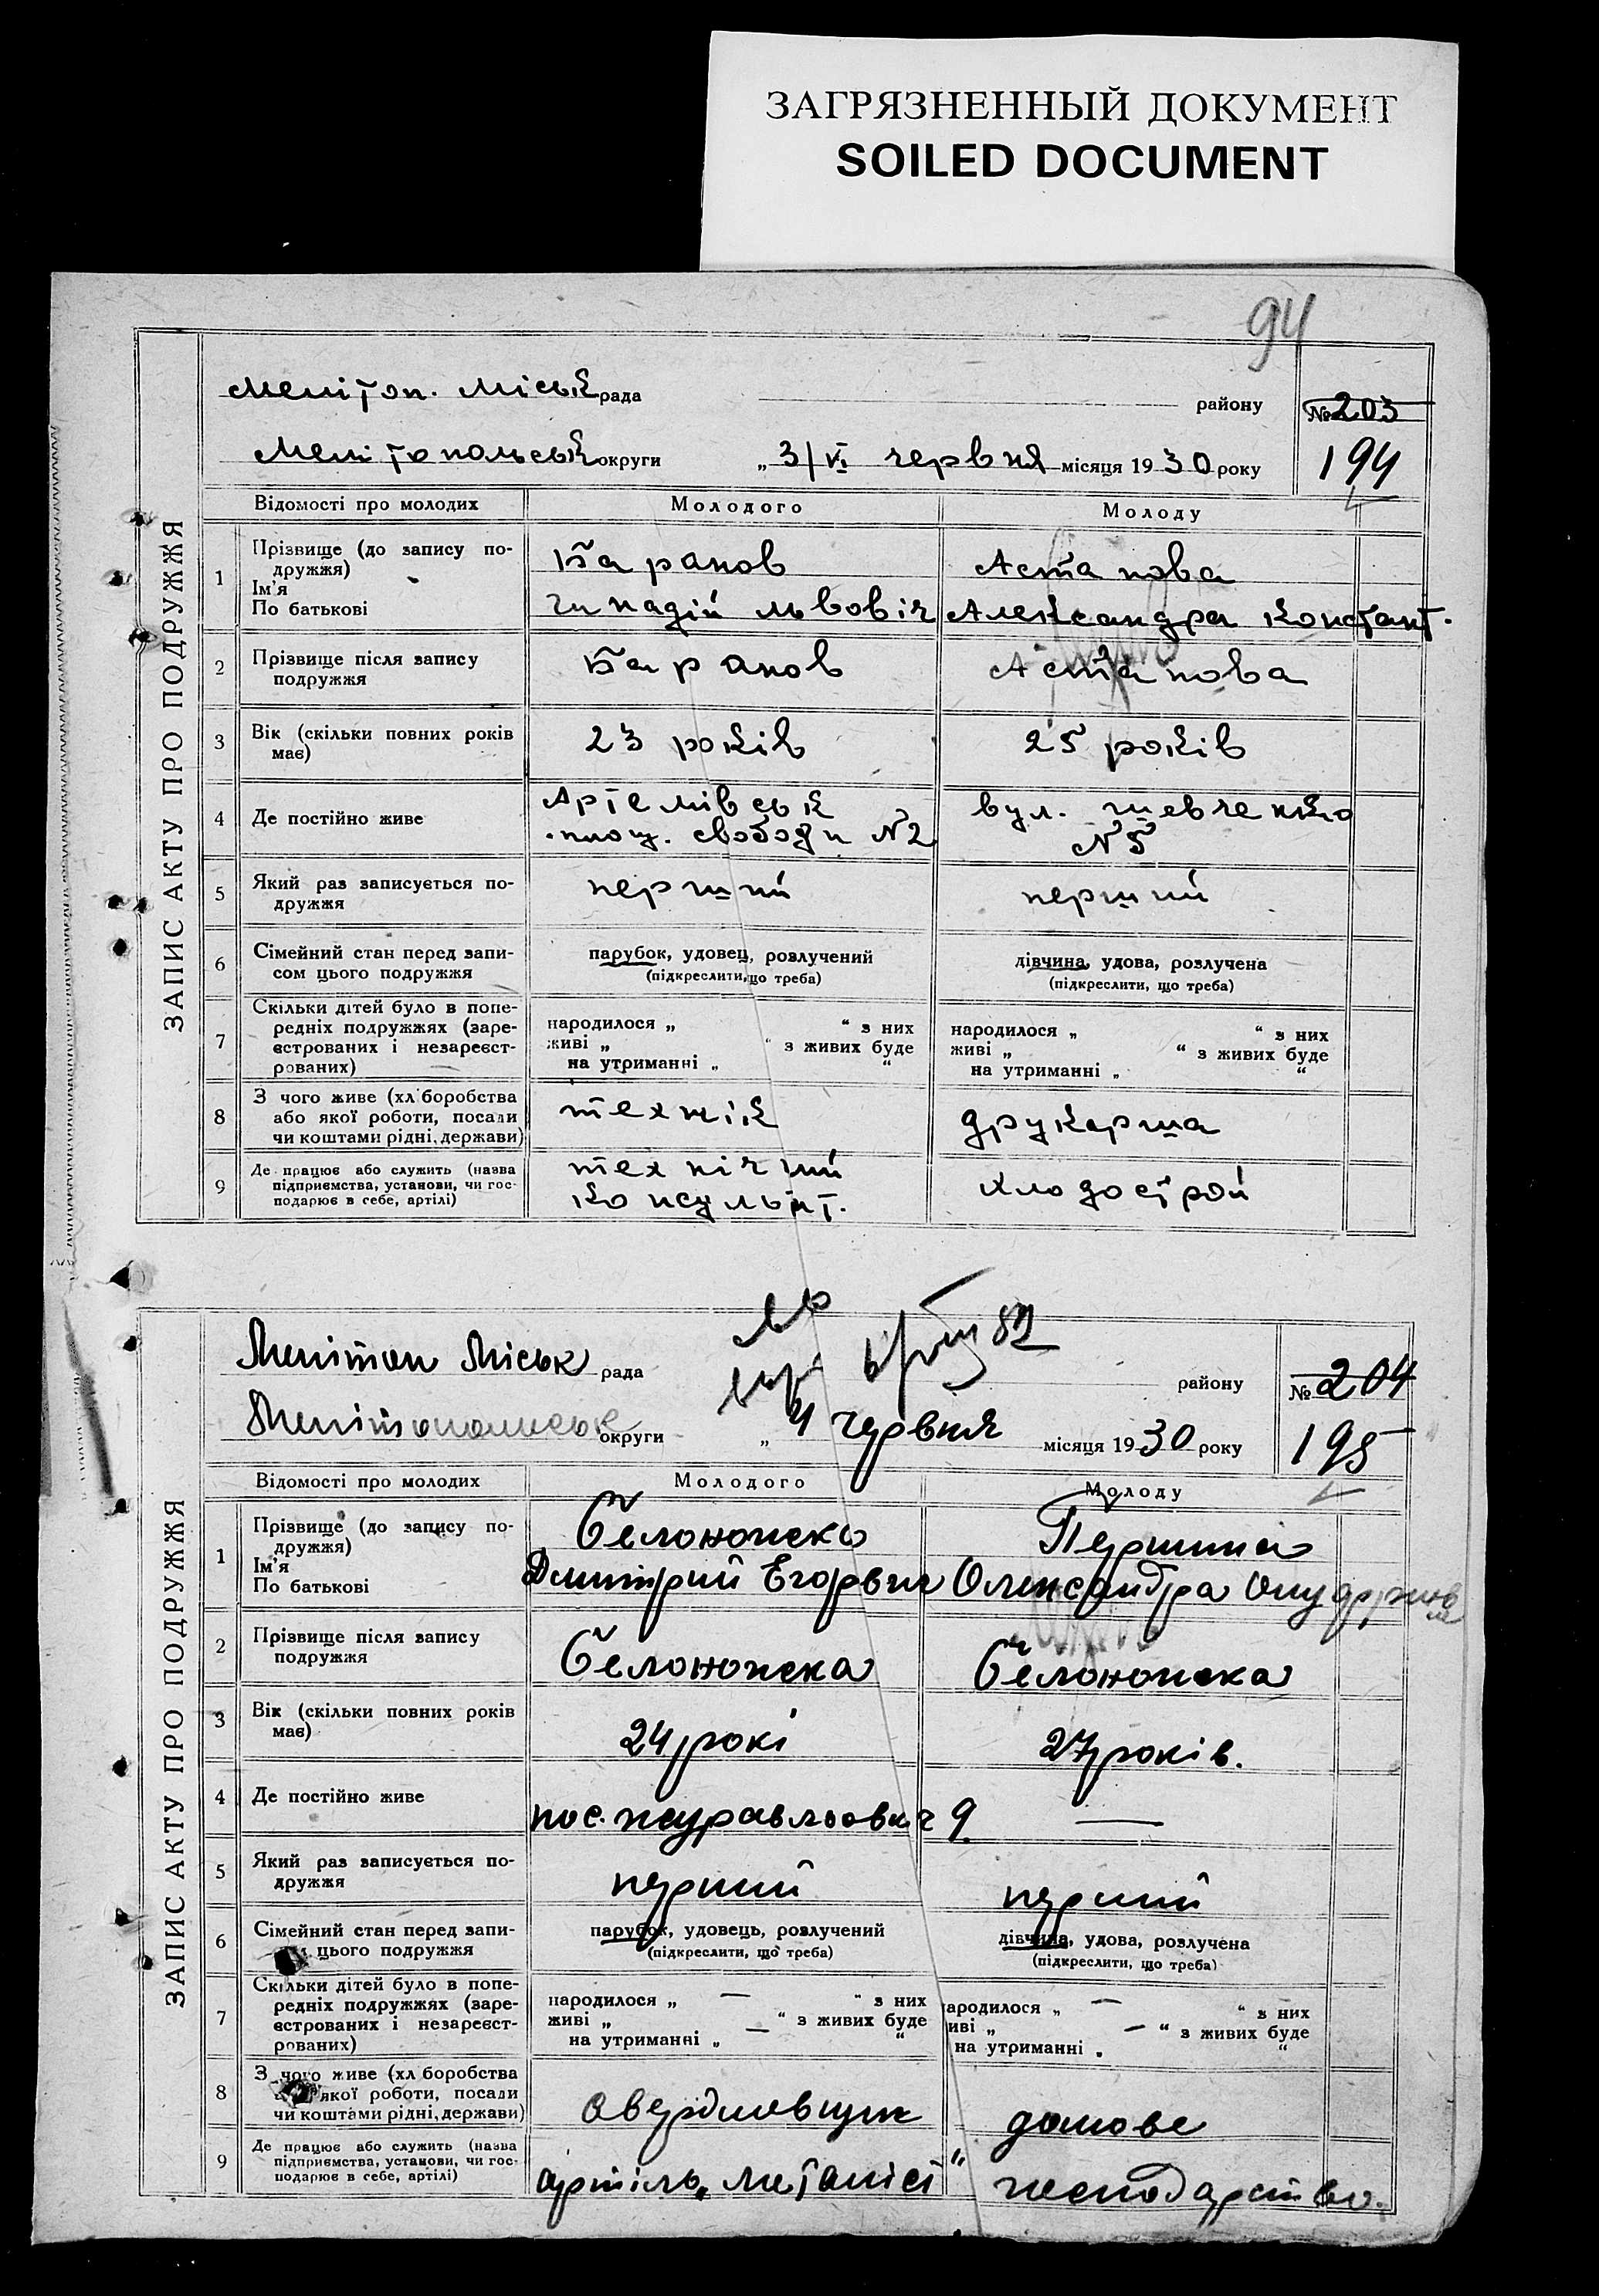 ЗАГРЯЗНЕННЫЙ ДОКУМЕНТ
SOILED DOCUMENT
94
ЗАПИС АКТУ ПРО ПОДРУЖЖЯ
Мелітоп. Міськ рада району № 203
Мелітопольськ округи „ 3/VI червня місяця 1930 року 194
Відомості про молодих Молодого Молоду
1 Прізвище (до запису по-
дружжя)
Ім'я
По батькові
Баранов Астанова
Гинадій Львовіч Александра Констант.
2 Прізвище після запису
подружжя
Баранов Астанова
3 Вік (скільки повних років
має)
23 років 25 років
4 Де постійно живе
Артемівськ вул. Шевченкко
площ. свободи N2 N 5
5 Який раз записується по-
дружжя
перший перший
6 Сімейний стан перед запи-
сом цього подружжя
парубок, удовец, розлучений дівчина, удова, розлучена
(підкреслити, що треба) (підкреслити, що треба)
7 Скільки дітей було в попе-
редніх подружжях (заре-
єстрованих і незареєст-
рованих)
народилося „ “ з них народилося „ “ з них
живі „ “ з живих буде живі „ “ з живих буде
на утриманні „ “ на утриманні „ “
8 З чого живе (хліборобства
або якої роботи, посади
чи коштами рідні, держави)
технік друкарша
9 Де працює або служить (назва
підприємства, установи, чи гос-
подарює в себе, артілі)
технічний
консульт. Хлодострой
ЗАПИС АКТУ ПРО ПОДРУЖЖЯ
Мелітоп Міськ рада району № 204
Мелітопольськ округи „ 4 червня місяця 1930 року 195
Відомості про молодих Молодого Молоду
1 Прізвище (до запису по-
дружжя)
Ім'я
По батькові
Белоножско Першина
Дмитрий Егорвич Олександра
2 Прізвище після запису
подружжя
Белоножска Белоножска
3 Вік (скільки повних років
має)
24 рокі 27 років.
4 Де постійно живе
пос. 9 —
5 Який раз записується по-
дружжя
перший перший
6 Сімейний стан перед запи-
цього подружжя
парубок, удовець, розлучений дівчина, удова, розлучена
(підкреслити, що треба) (підкреслити, що треба)
7 Скільки дітей було в попе-
редніх подружжях (заре-
єстрованих і незареєст-
рованих)
народилося „ — “ з них ародилося „ — “ з них
живі „ — “ з живих буде иві „ — “ з живих буде
на утриманні „ “ на утриманні „ “
8 З чого живе (хліборобства
якої роботи, посади
чи коштами рідні, держави)
домове
9 Де працює або служить (назва
підприємства, установи, чи гос-
подарює в себе, артілі)
артіль „Метаніст" господарство.